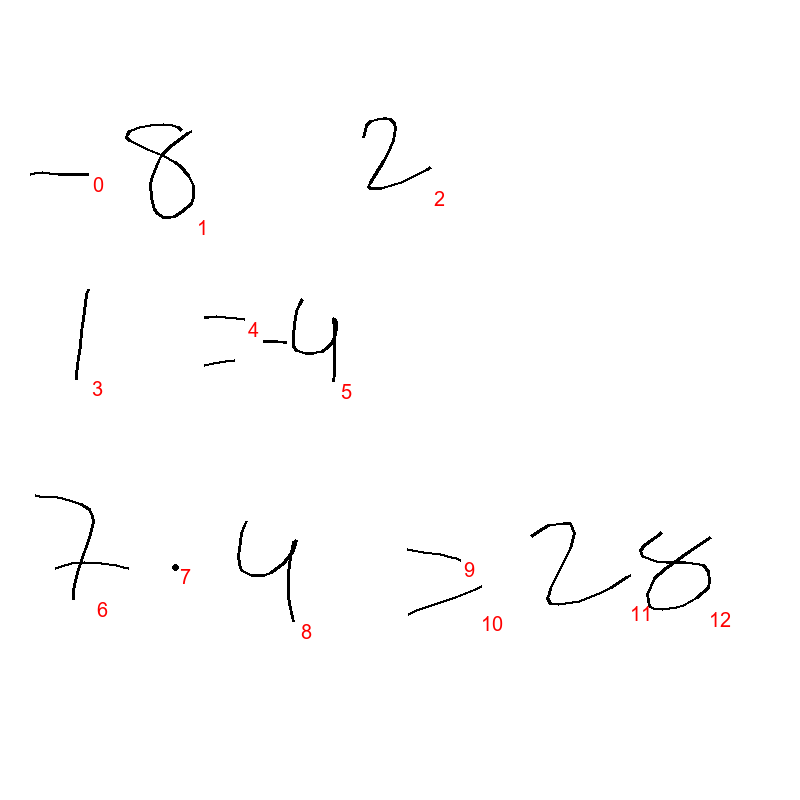 — 8 2
0 1 2
1 = -4
3 4 5
7 · 4 = 28
6 7 8 9 10 11 12